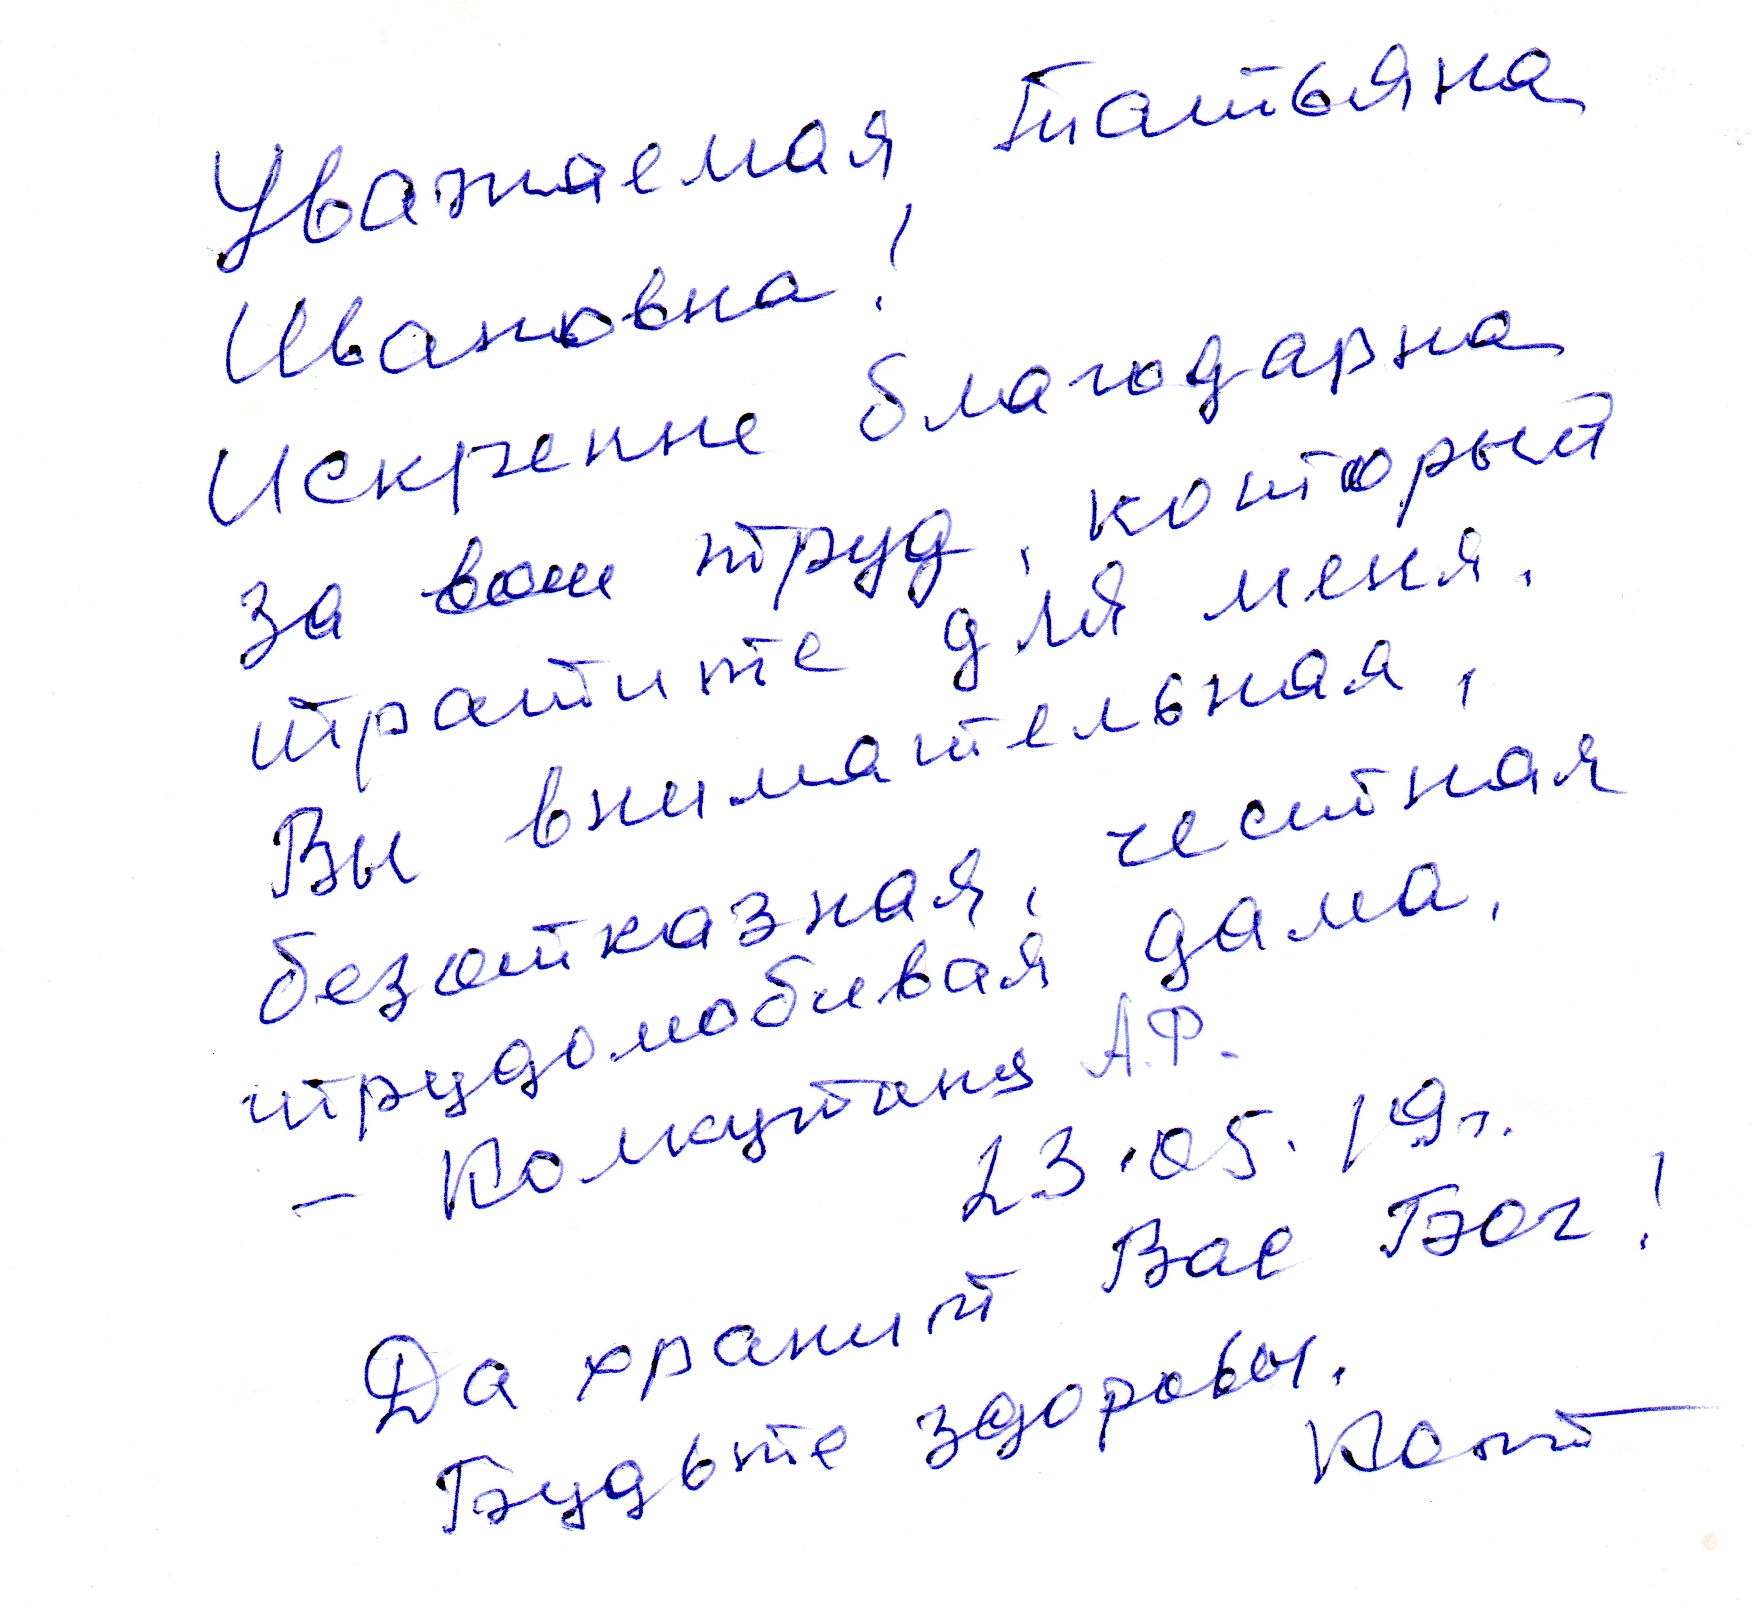 Уважаемая Татьяна
Ивановна!
Искренне благодарна
за ваш труд, который
тратите для меня.
Вы внимательная,
безотказная, честная
трудолюбивая дама.
А.Ф.
23.05.19г.
Да хранит Вас Бог!
Будьте здоровы.